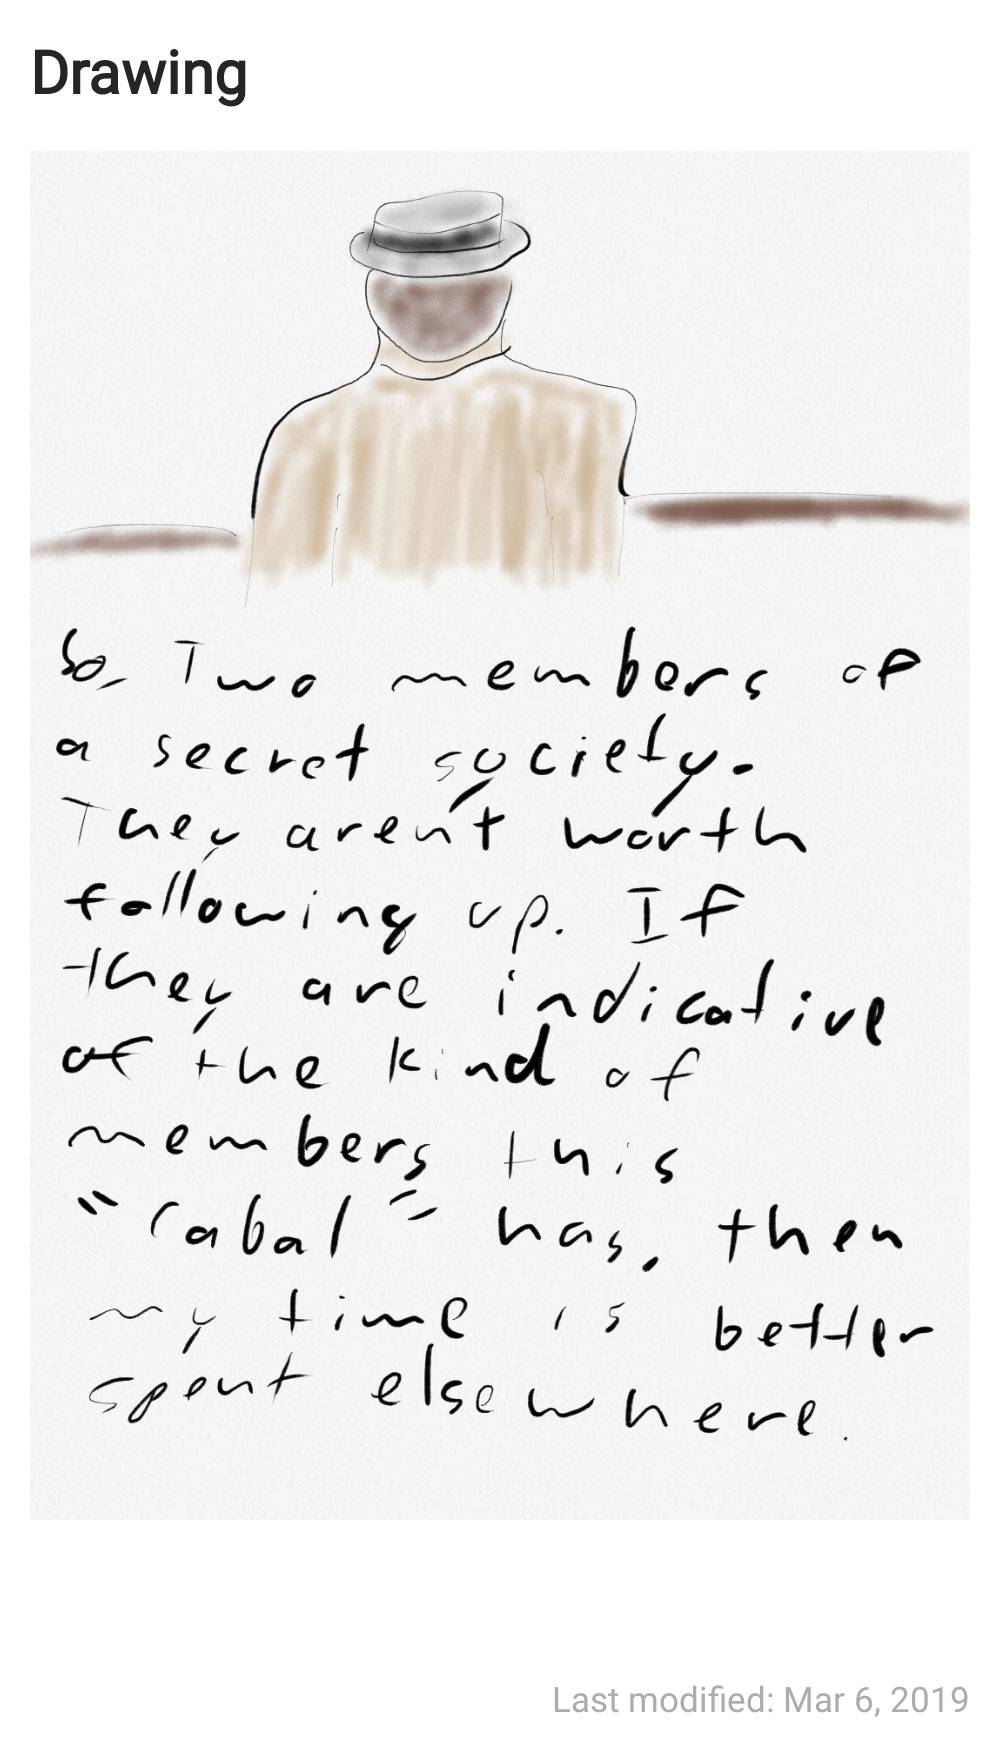 Drawing
So, Two members of
a secret society.
They aren't worth
following up. If
they are indicative
of the kind of
members this
"cabal" has, then
my time is better
spent elsewhere.
Last modified: Mar 6, 2019